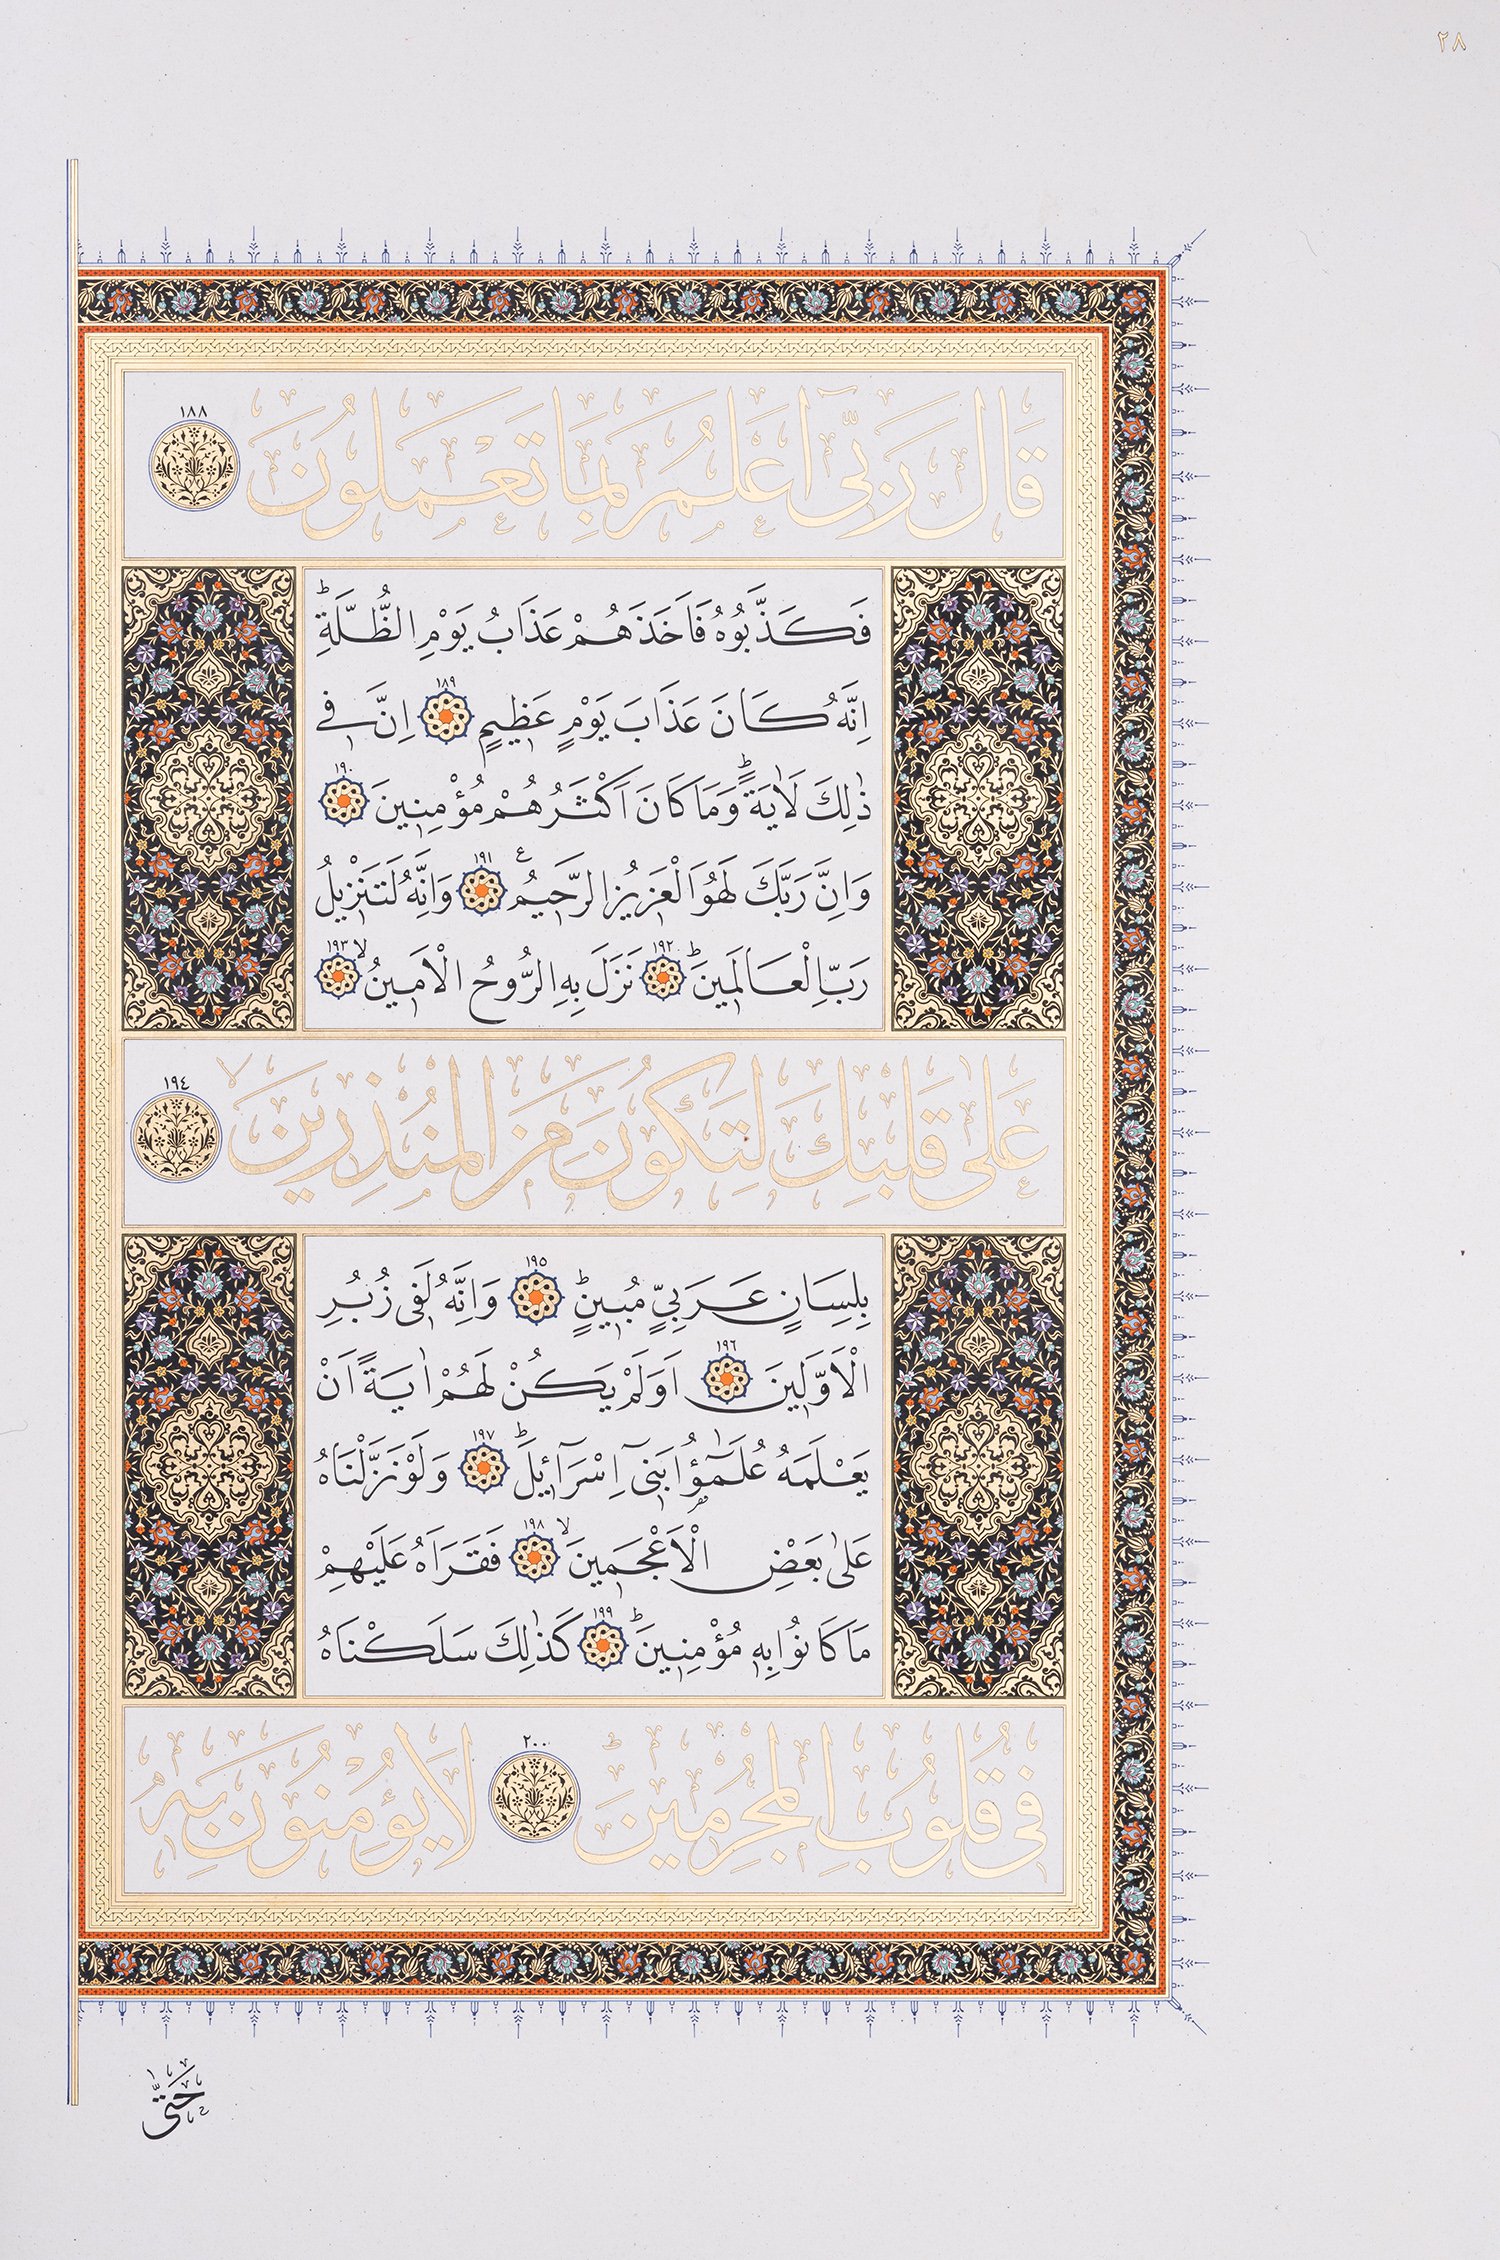 ٢٨
قَالَ رَبّ۪ٓي اَعْلَمُ بِمَا تَعْمَلُونَ ١٨٨
فَكَذَّبُوهُ فَاَخَذَهُمْ عَذَابُ يَوْمِ الظُّلَّةِۜ
اِنَّهُ كَانَ عَذَابَ يَوْمٍ عَظ۪يمٍ ١٨٩ اِنَّ ف۪ي
ذٰلِكَ لَاٰيَةًۜ وَمَا كَانَ اَكْثَرُهُمْ مُؤْمِن۪ينَ ١٩٠
وَاِنَّ رَبَّكَ لَهُوَ الْعَز۪يزُ الرَّح۪يمُ ع ١٩١ وَاِنَّهُ لَتَنْز۪يلُ
رَبِّ الْعَالَم۪ينَۜ ١٩٢ نَزَلَ بِهِ الرُّوحُ الْاَم۪ينُۙ ١٩٣
عَلٰى قَلْبِكَ لِتَكُونَ مِنَ الْمُنْذِر۪ينَۙ ١٩٤
بِلِسَانٍ عَرَبِيٍّ مُب۪ينٍۜ ١٩٥ وَاِنَّهُ لَف۪ي زُبُرِ
الْاَوَّل۪ينَ ١٩٦ اَوَلَمْ يَكُنْ لَهُمْ اٰيَةً اَنْ
يَعْلَمَهُ عُلَمٰٓؤُ۬ا بَن۪ٓي اِسْرَٓائ۪لَۜ ١٩٧ وَلَوْ نَزَّلْنَاهُ
عَلٰى بَعْضِ الْاَعْجَم۪ينَۙ ١٩٨ فَقَرَاَهُ عَلَيْهِمْ
مَا كَانُوا بِه۪ مُؤْمِن۪ينَۜ ١٩٩ كَذٰلِكَ سَلَكْنَاهُ
ف۪ي قُلُوبِ الْمُجْرِم۪ينَۜ ٢٠٠ لَا يُؤْمِنُونَ بِه۪
حَتّٰى